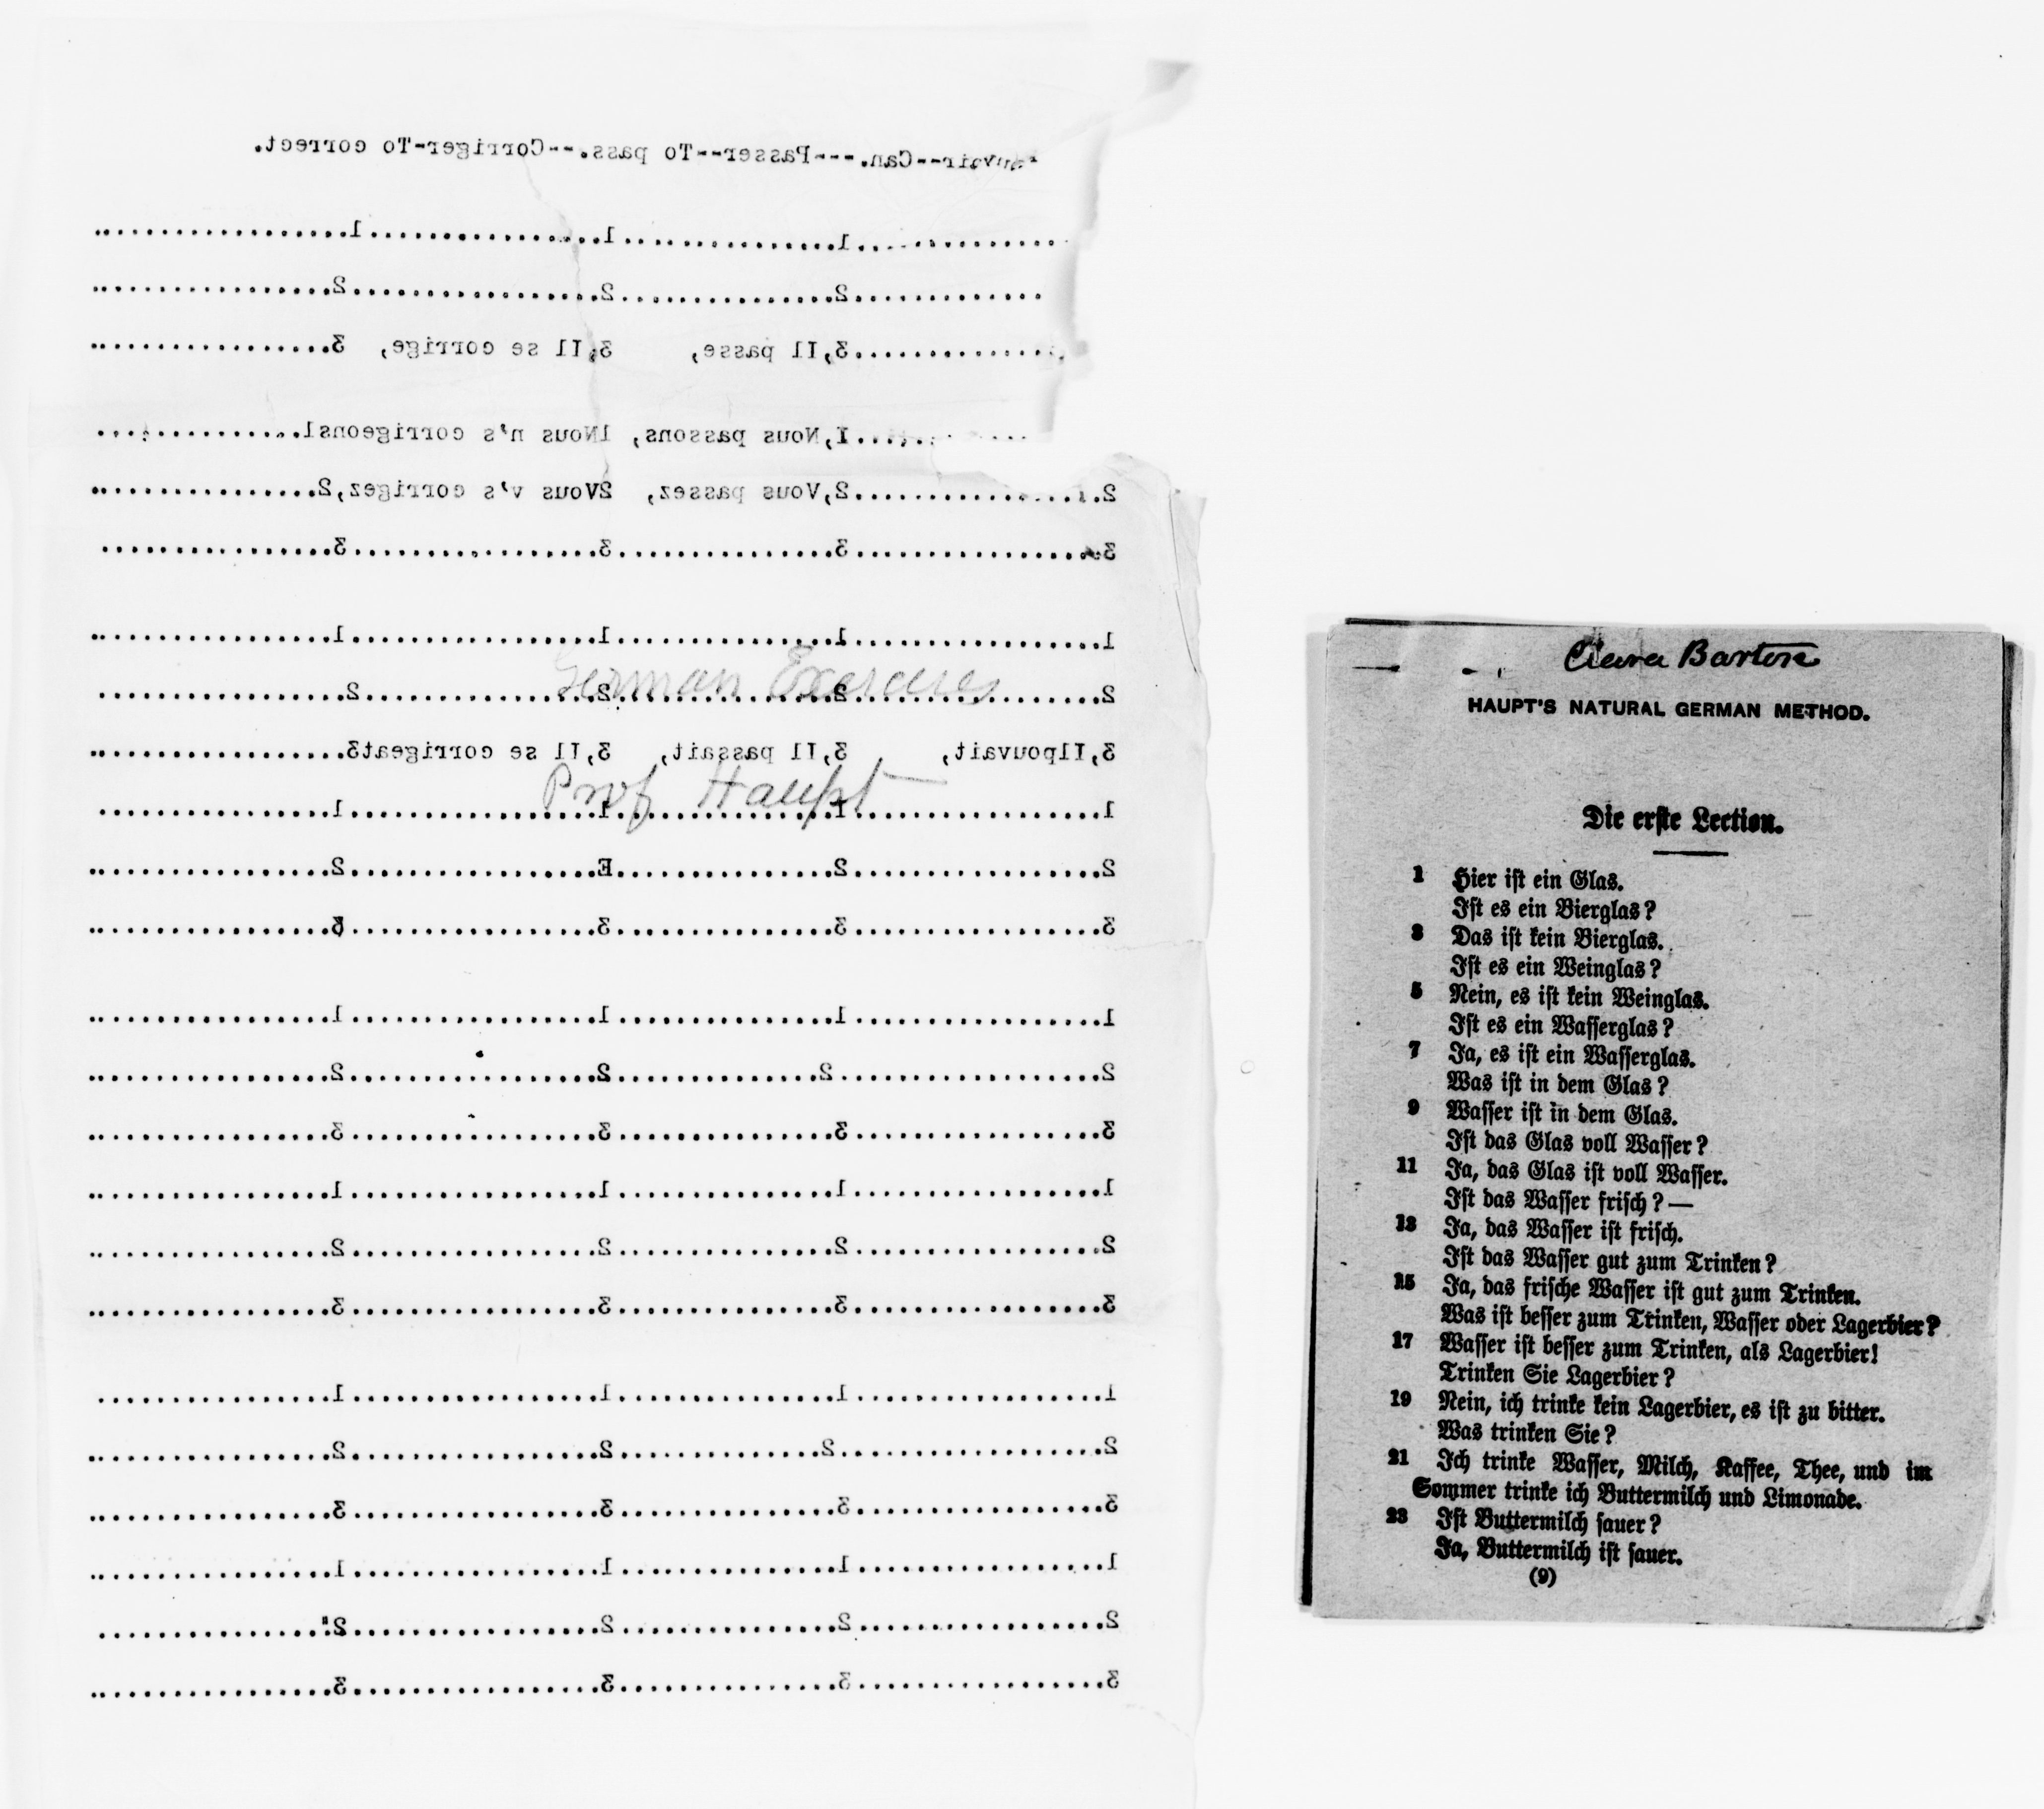 Pouvoir--Can.---Passer--To pass.--Corriger-To correct.
................1................1................1................
................2................2................2................
................3,Il passe, 3,Il se corrige, 3................
................1,Nous passons, 1Nous n's corrigeons1................
2................2,Vous passez, 2Vous v's corrigez,2................
3................3................3................3................
1................1................1................1................
German Exercises
2................2................2................2................
3,Ilpouvait, 3,Il passait, 3,Il se corrigeat3................
Prof Haupt
1................1................1................1................
2................2................E................2................
3................3................3................3................
1................1................1................1................
2................2................2................2................
3................3................3................3................
1................1................1................1................
2................2................2................2................
3................3................3................3................
1................1................1................1................
2................2................2................2................
3................3................3................3................
1................1................1................1................
2................2................2................2................
3................3................3................3................
Clara Barton
HAUPT'S NATURAL GERMAN METHOD.
Die erste Lection.
1 Hier ist ein Glas.
Ist es ein Bierglas?
3 Das ist kein Bierglas.
Ist es ein Weinglas?
5 Nein, es ist kein Weinglas.
Ist es ein Wasserglas?
7 Ja, es ist ein Wasserglas.
Was ist in dem Glas?
9 Wasser ist in dem Glas.
Ist das Glas voll Wasser?
11 Ja, das Glas ist voll Wasser.
Ist das Wasser frisch?—
13 Ja, das Wasser ist frisch.
Ist das Wasser gut zum Trinken?
15 Ja, das frische Wasser ist gut zum Trinken.
Was ist besser zum Trinken, Wasser oder Lagerbier?
17 Wasser ist besser zum Trinken, als Lagerbier!
Trinken Sie Lagerbier?
19 Nein, ich trinke kein Lagerbier, es ist zu bitter.
Was trinken Sie?
21 Ich trinke Wasser, Milch, Kaffee, Thee, und im
Sommer trinke ich Buttermilch und Limonade.
23 Ist Buttermilch sauer?
Ja, Buttermilch ist sauer.
(9)